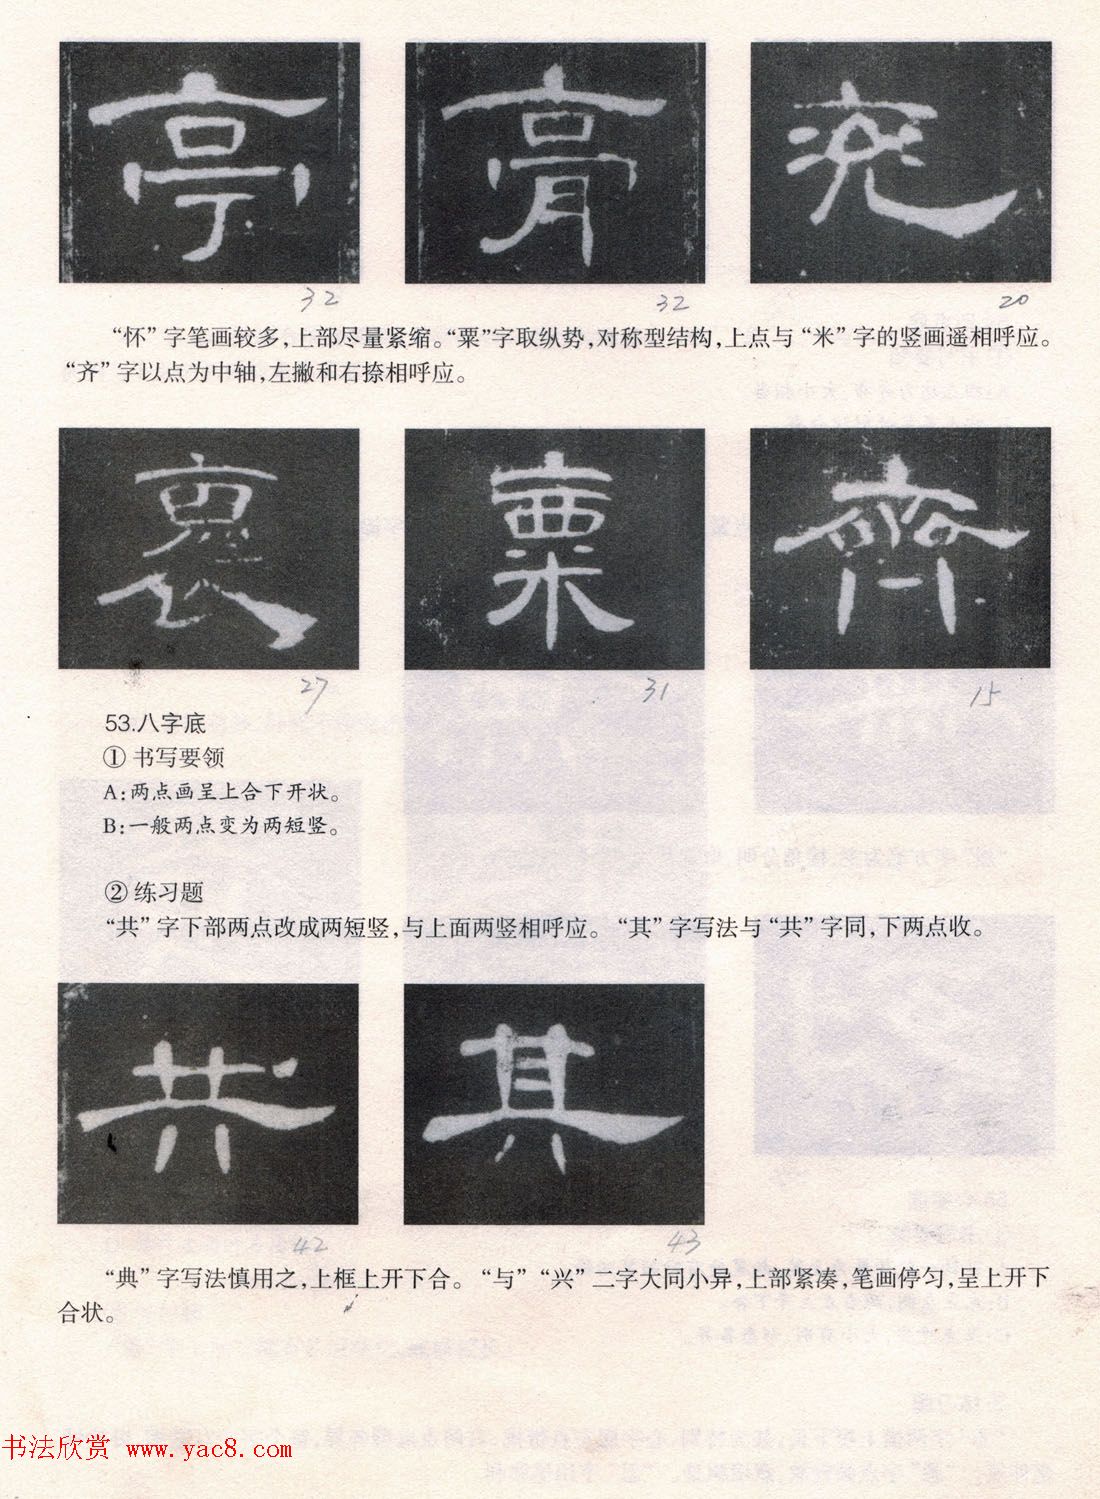 亭 膏 兖
32 32 20
“怀”字笔画较多，上部尽量紧缩。“粟”字取纵势，对称型结构，上点与“米”字的竖画遥相呼应。
“齐”字以点为中轴，左撇和右捺相呼应。
褱 粟 齊
27 31 15
53.八字底
① 书写要领
A：两点画呈上合下开状。
B：一般两点变为两短竖。
② 练习题
“共”字下部两点改成两短竖，与上面两竖相呼应。“其”字写法与“共”字同，下两点收。
共 其
42 43
“典”字写法慎用之，上框上开下合。“与”“兴”二字大同小异，上部紧凑，笔画停匀，呈上开下
合状。
书法欣赏 www.yac8.com